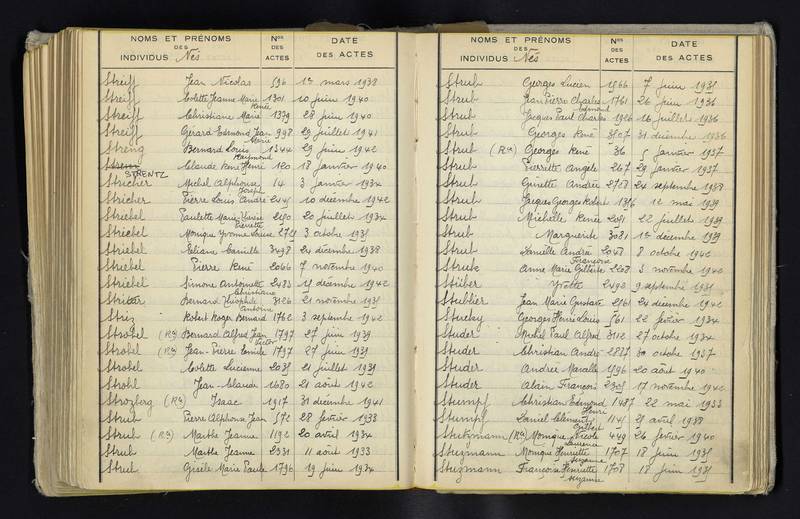 NOMS ET PRÉNOMS
DES
INDIVIDUS Nés
Nos
DES
ACTES
DATE
DES ACTES
Streiff Jean Nicolas 596 1er mars 1938
Streiff Colette Jeanne Marie 1301 10 juin 1940
Renée
Streiff Christiane Marie 1379 28 juin 1940
Streiff Gérard Edmond Jean 998 29 juillet 1941
Marie
Streng Bernard Louis 1544 29 juin 1942
Raymond
STRENTZ Claude René Henri 120 18 janvier 1940
Stricher Michel Alphonse 14 3 janvier 1934
Joseph
Stricher Pierre Louis André 2445 10 décembre 1942
Striebel Paulette Marie 20 juillet 1934
Pierrette
Striebel Monique Yvonne Louise 3 octobre 1935
Striebel Liliane Camille 3498 24 décembre 1938
Striebel Pierre René 2066 7 novembre 1940
Striebel Simone Antoinette 2483 15 décembre 1942
Christiane
Bernard Théophile 3126 21 novembre 1935
Antoine
Robert Roger Bernard 3 septembre 1942
Strobel Bernard Alfred Jean 1797 27 juin 1939
Victor
Strobel Jean-Pierre Emile 1797 27 juin 1939
Strobel Colette Lucienne 2035 21 juillet 1939
Strohl Jean-Claude 1680 21 août 1942
Strozberg Isaac 1917 31 décembre 1941
Strub Pierre Alphonse Jean 572 28 février 1933
Strub Marthe Jeanne 1192 20 avril 1934
Strub Martha Jeanne 2331 11 août 1933
Strub Gisèle Marie Paule 1796 19 juin 1934
NOMS ET PRÉNOMS
DES
INDIVIDUS Nés
Nos
DES
ACTES
DATE
DES ACTES
Strub Georges Lucien 1566 7 juin 1935
Strub Jean Pierre Charles 1761 26 juin 1936
Edmond
Strub Jacques Paul Charles 1926 16 juillet 1936
Strub Georges René 3507 31 décembre 1936
Strub Georges René 36 5 janvier 1937
Strub Pierrette Angèle 267 29 janvier 1937
Strub Ginette Andrée 2758 24 septembre 1938
Strub Jacques Georges Robert 1376 12 mai 1939
Strub Michelle Renée 2051 22 juillet 1939
Strub Marguerite 3031 1er décembre 1939
Strub Danielle Andrée 2048 8 octobre 1942
Françoise
Strube Anne Marie Gilberte 2208 3 novembre 1942
Stüber Yvette 2498 9 septembre 1931
Stublier Jean Marie Gustave 2561 24 décembre 1942
Stucky Georges Henri Louis 561 22 février 1934
Studer Michel Paul Alfred 3112 27 octobre 1934
Studer Christian André 2827 30 octobre 1937
Studer Andrée 1596 20 août 1940
Studer Alain François 2305 17 novembre 1942
Stumpf Christian Edmond 1487 22 mai 1933
Henri
Stumpf Daniel Clément 1141 21 avril 1938
Stutzmann Monique Nicole 449 24 février 1940
Laurence
Stutzmann Monique Henriette 1707 18 juin 1935
Suzanne
Stutzmann Françoise Henriette 1708 18 juin 1935
Suzanne